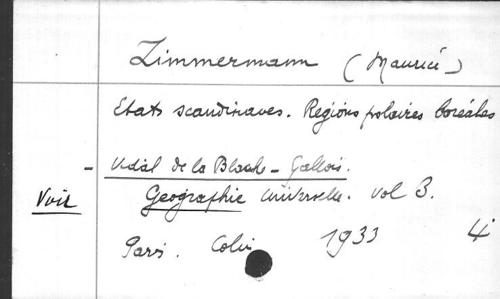 Zimmermann (Maurice)
Etats scandinaves. Régions polaires boréales
- Vidal de la Blache - Gallois.
Voir Géographie Universelle. vol 3.
Paris. Colin 1933 4°